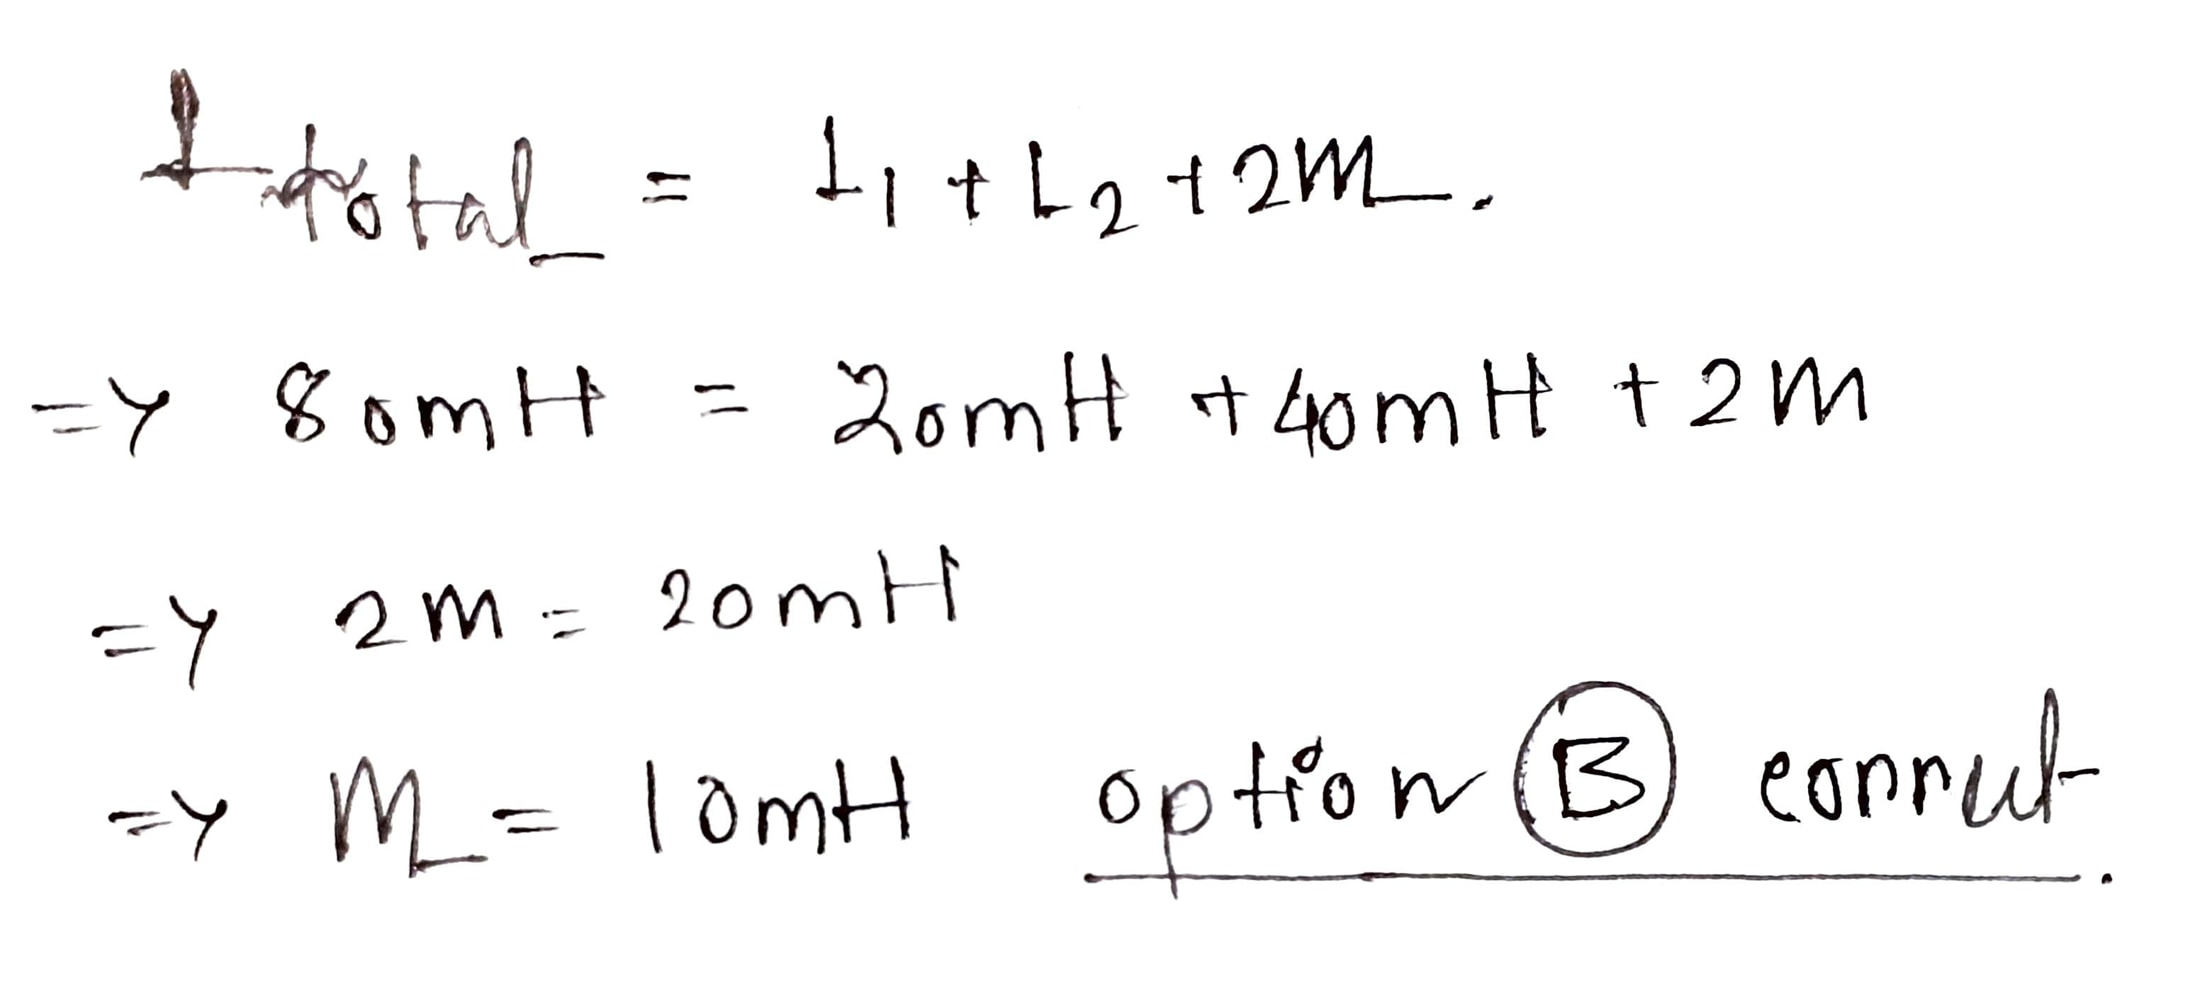 L total = L1 + L2 + 2M.
=> 80mH = 20mH + 40mH + 2M
=> 2M = 20mH
=> M = 10mH option B correct.